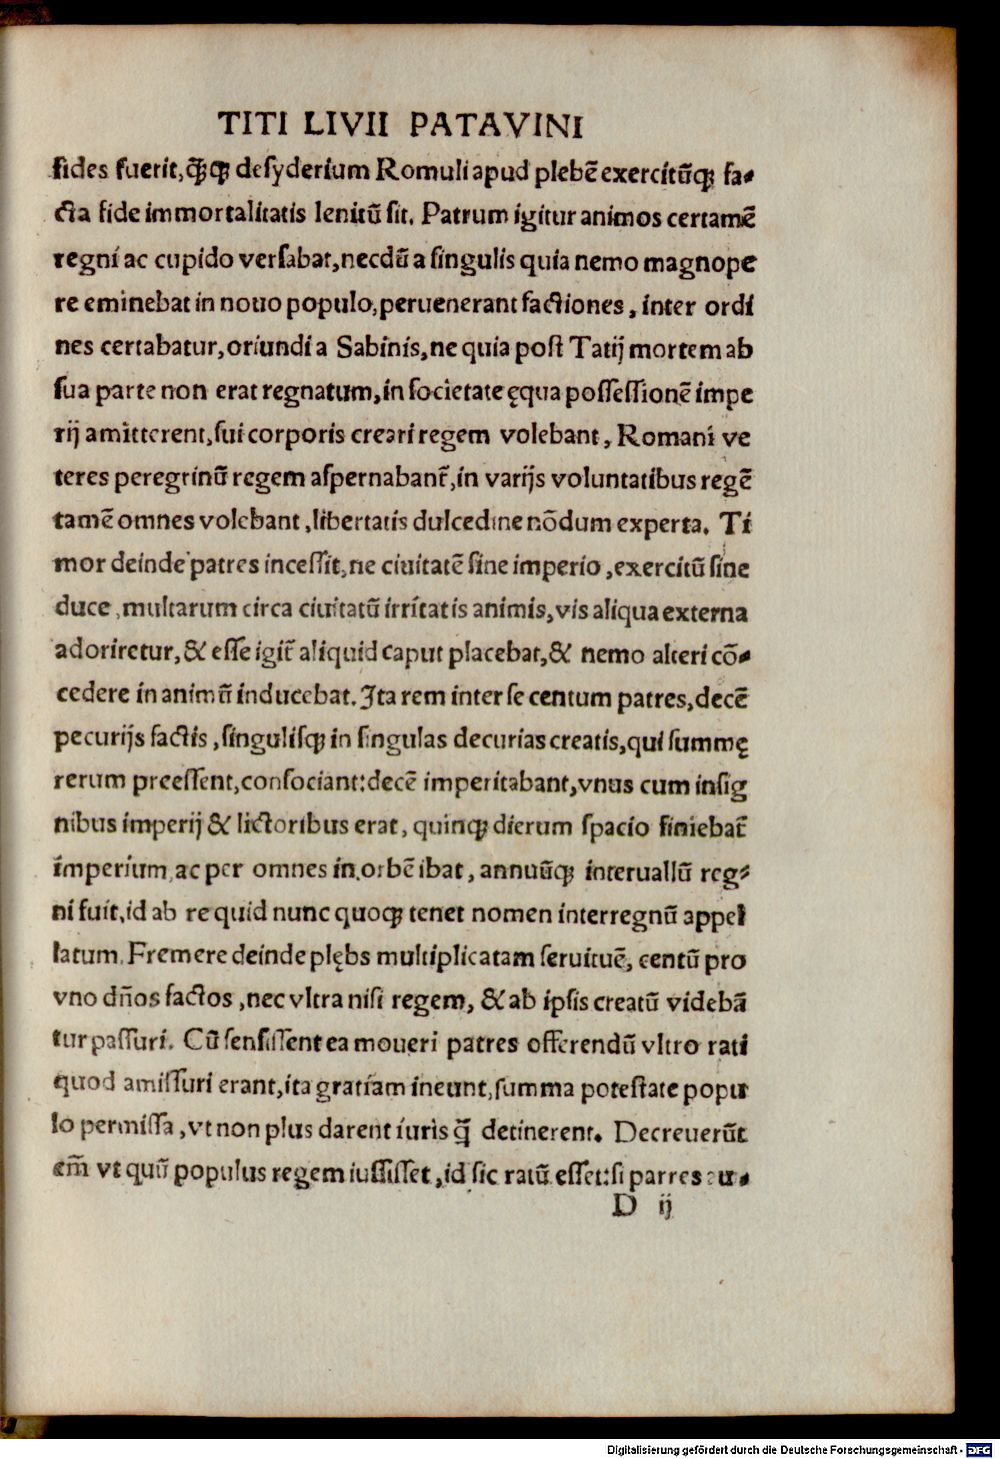 TITI LIVII PATAVINI
fides fuerit,q̃ꝙ desyderium Romuli apud plebẽ exercitũꝙ fa-
cta fide immortalitatis lenitũ sit. Patrum igitur animos certamẽ
regni ac cupido versabat,necdũ a singulis quia nemo magnope
re eminebat in nouo populo,peruenerant factiones, inter ordi
nes certabatur,oriundi a Sabinis,ne quia post Tatij mortem ab
sua parte non erat regnatum,in societate ęqua possessionẽ impe
rij amitterent,sui corporis creari regem volebant, Romani ve
teres peregrinũ regem aspernabant̃,in varijs voluntatibus regẽ
tamẽ omnes volebant,libertatis dulcedine nõdum experta. Ti
mor deinde patres incessit,ne ciuitatẽ sine imperio,exercitũ sine
duce,multarum circa ciuitatũ irritatis animis,vis aliqua externa
adoriretur,& esse igit̃ aliquid caput placebat,& nemo alteri cõ-
cedere in animũ inducebat. Ita rem inter se centum patres,decẽ
pecurijs factis,singulisꝙ in singulas decurias creatis,qui summę
rerum preessent,consociant:decẽ imperitabant,vnus cum insig
nibus imperij & lictoribus erat, quinꝙ dierum spacio finiebat̃
imperium,ac per omnes in orbẽ ibat, annuũꝙ interuallũ reg-
ni fuit,id ab re quid nunc quoꝙ tenet nomen interregnũ appel
latum. Fremere deinde plębs multiplicatam seruitutẽ, centũ pro
vno dños factos,nec vltra nisi regem, & ab ipsis creatũ videbã
tur passuri. Cũ sensissent ea moueri patres offerendũ vltro rati
quod amissuri erant,ita gratiam ineunt,summa potestate popu
lo permissa,vt non plus darent iuris q̃ detinerent. Decreuerũt
em̃ vt quũ populus regem iussisset,id sic ratũ esset:si patres au-
D ij
Digitalisierung gefördert durch die Deutsche Forschungsgemeinschaft - DFG